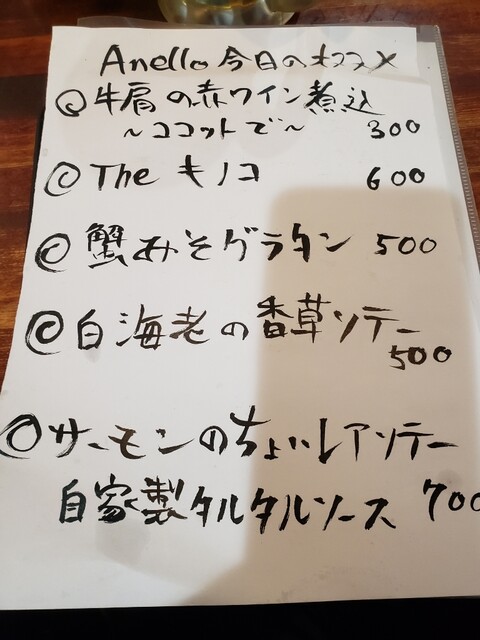 Anello 今日のオススメ
◎牛肩の赤ワイン煮込
～ココットで～ 300
◎The キノコ 600
◎蟹みそグラタン 500
◎白海老の香草ソテー
500
◎サーモンのちょいレアソテー
自家製タルタルソース 700